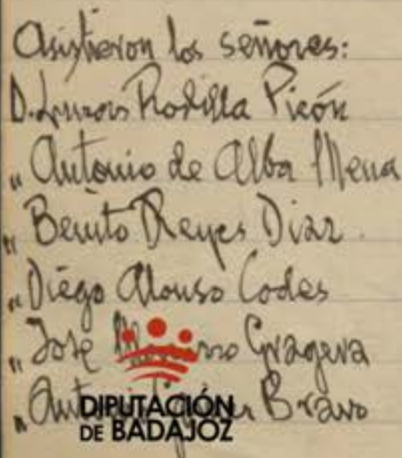 Asistieron los señores:
D. Rodilla Picón
" Antonio de Alba Mena
" Benito Reyes Diaz.
" Diego Alonso Codes
" José Gragera
" Bravo
DIPUTACIÓN
DE BADAJOZ